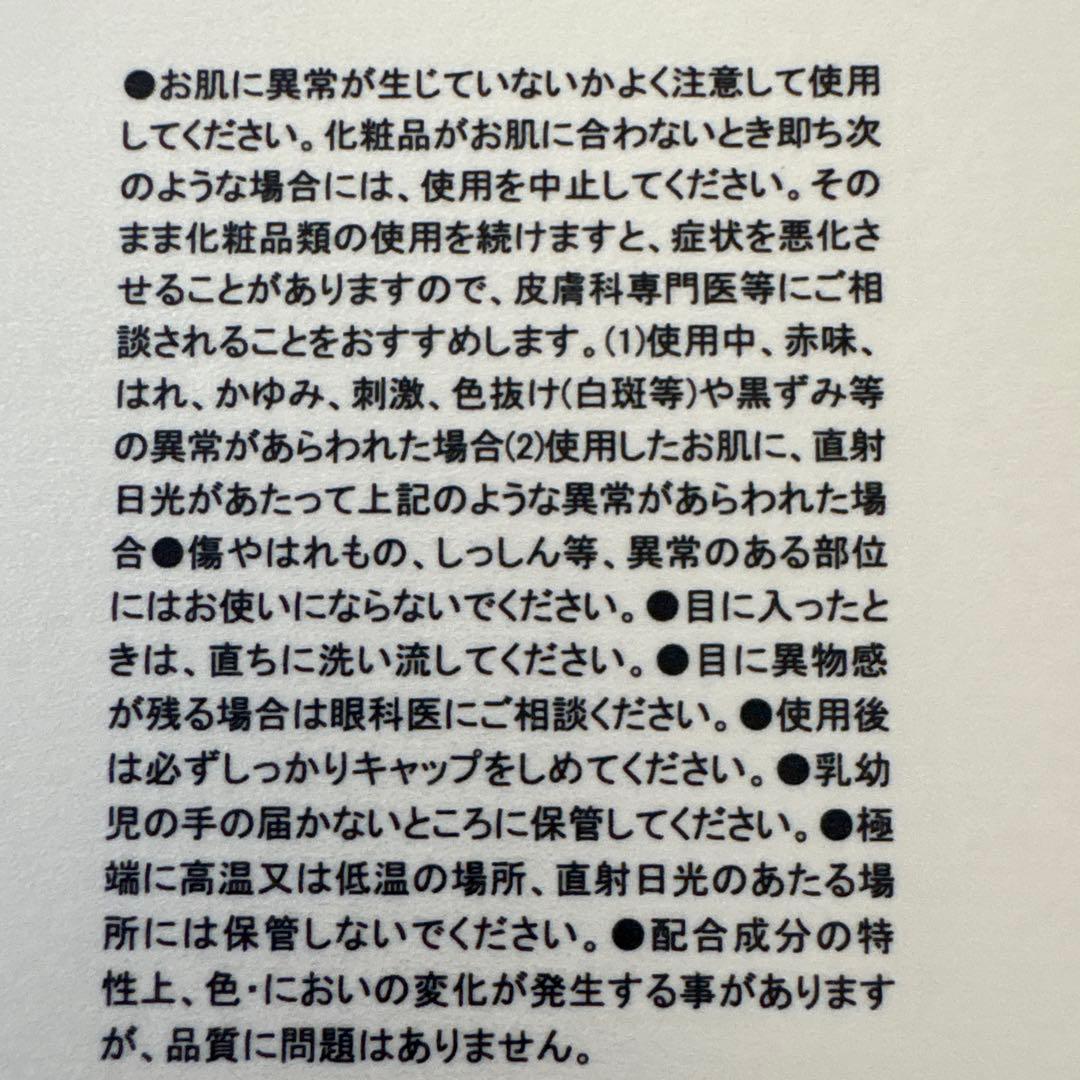 ●お肌に異常が生じていないかよく注意して使用
してください。化粧品がお肌に合わないとき即ち次
のような場合には、使用を中止してください。その
まま化粧品類の使用を続けますと、症状を悪化さ
せることがありますので、皮膚科専門医等にご相
談されることをおすすめします。(1)使用中、赤味、
はれ、かゆみ、刺激、色抜け(白斑等)や黒ずみ等
の異常があらわれた場合(2)使用したお肌に、直射
日光があたって上記のような異常があらわれた場
合●傷やはれもの、しっしん等、異常のある部位
にはお使いにならないでください。●目に入ったと
きは、直ちに洗い流してください。●目に異物感
が残る場合は眼科医にご相談ください。●使用後
は必ずしっかりキャップをしめてください。●乳幼
児の手の届かないところに保管してください。●極
端に高温又は低温の場所、直射日光のあたる場
所には保管しないでください。●配合成分の特
性上、色・においの変化が発生する事があります
が、品質に問題はありません。